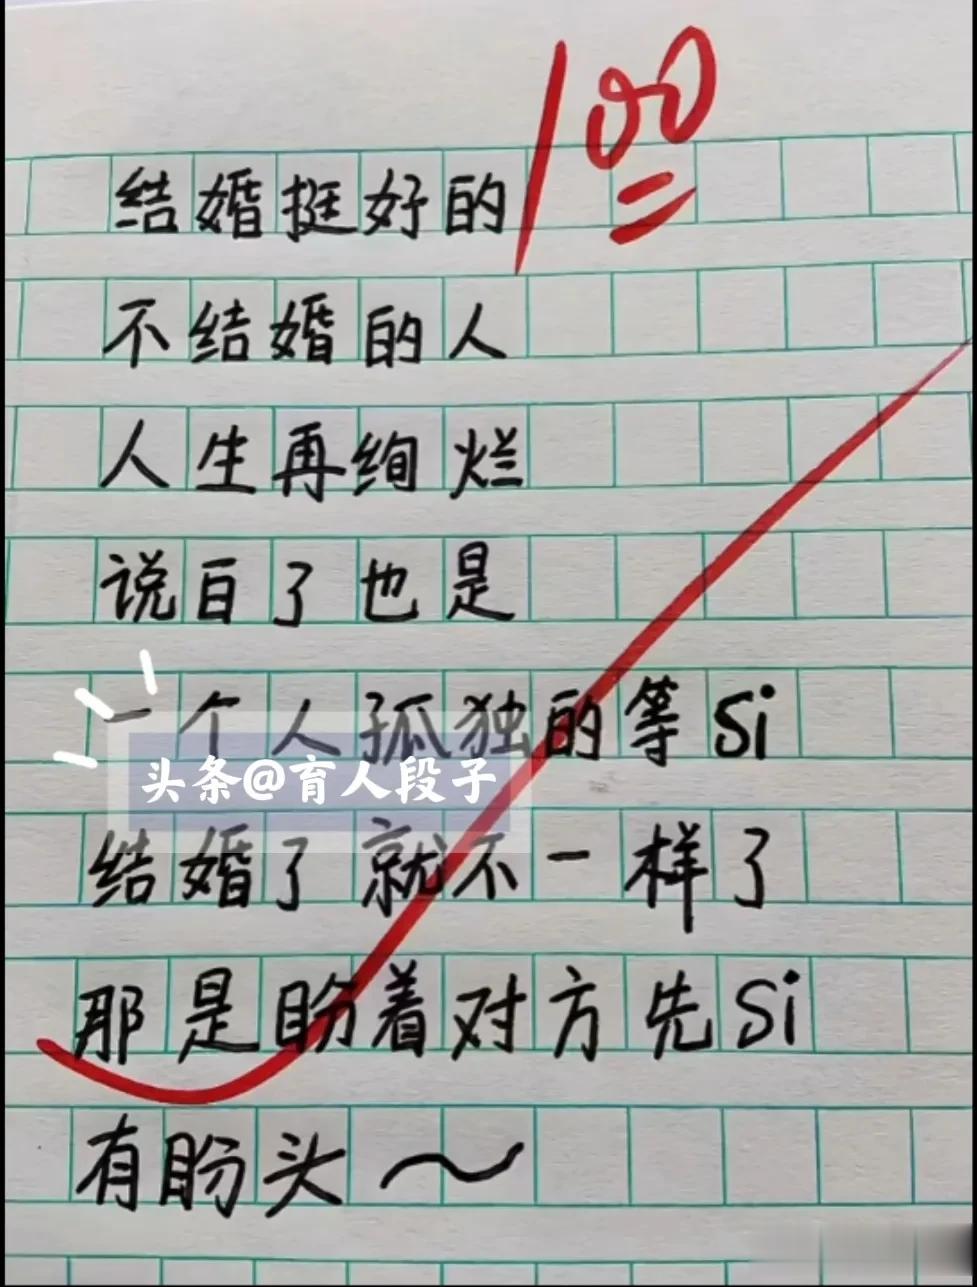 100
结婚挺好的
不结婚的人
人生再绚烂
说白了也是
一个人孤独的等Si
头条@育人段子
结婚了就不一样了
那是盼着对方先Si
有盼头～